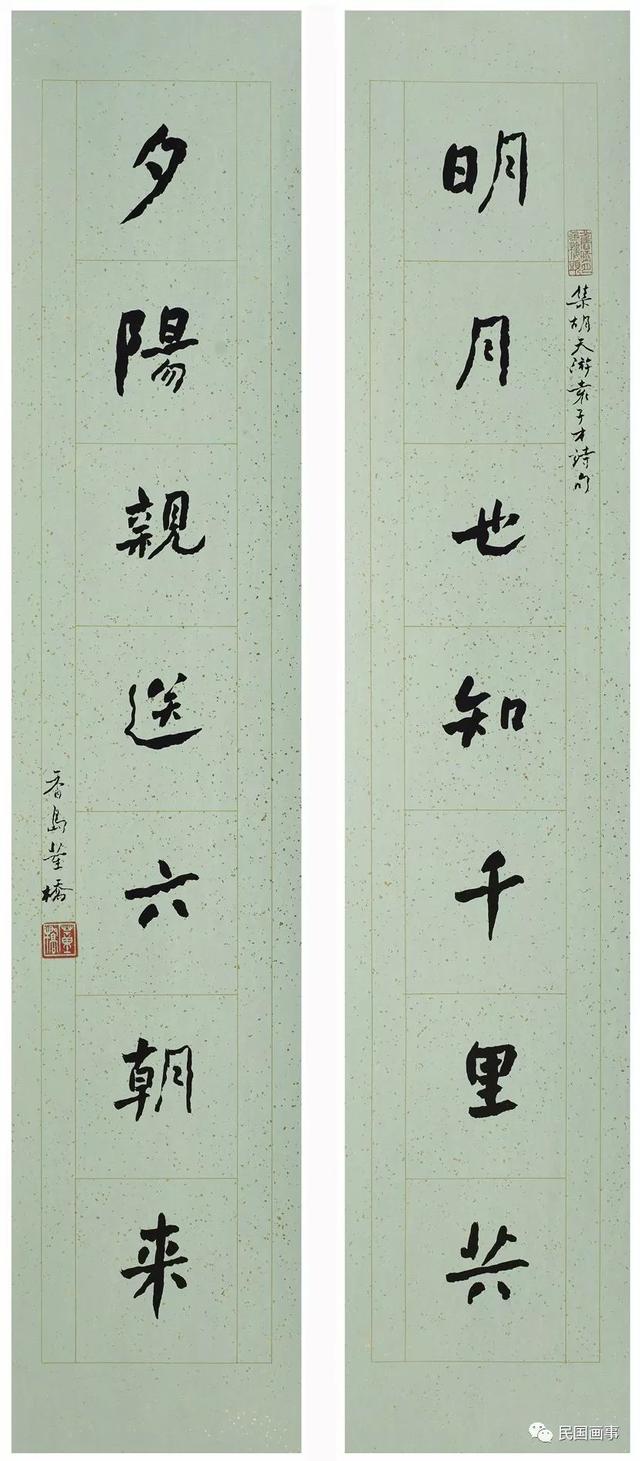 明月也知千里共
集胡天游袁子才詩句
夕陽親送六朝来
香島董橋
董橋
民国画事